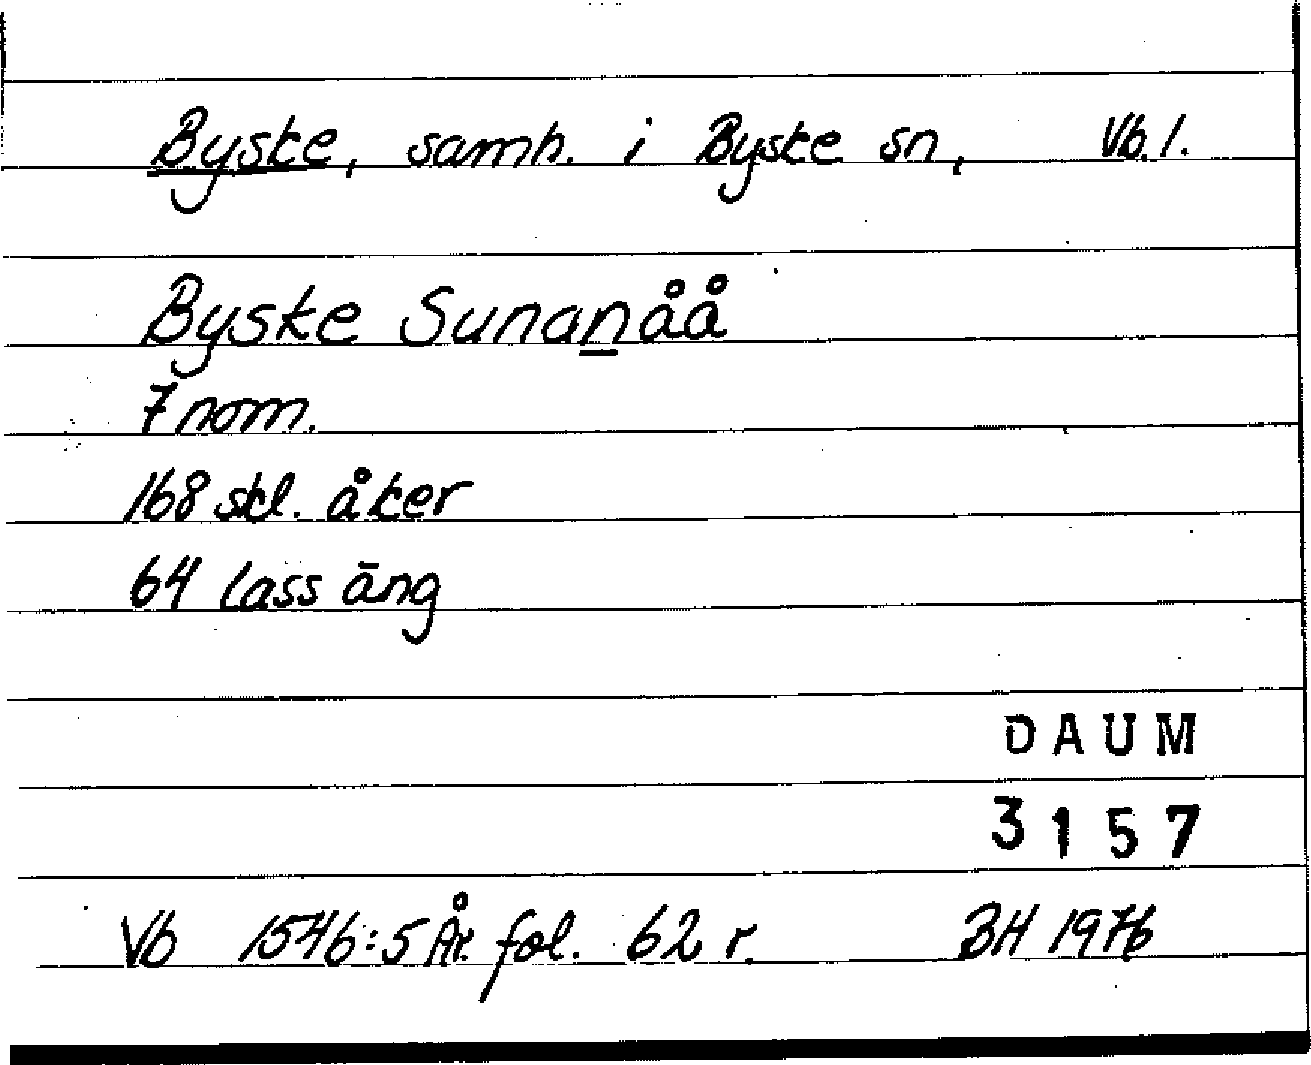 Byske, samh. i Byske sn, Vb. l.
Byske Sunanåå
7 nom.
168 skl. åker
64 lass äng
DAUM
3157
Vb 1546:5 År. fol. 62 r. BH 1976